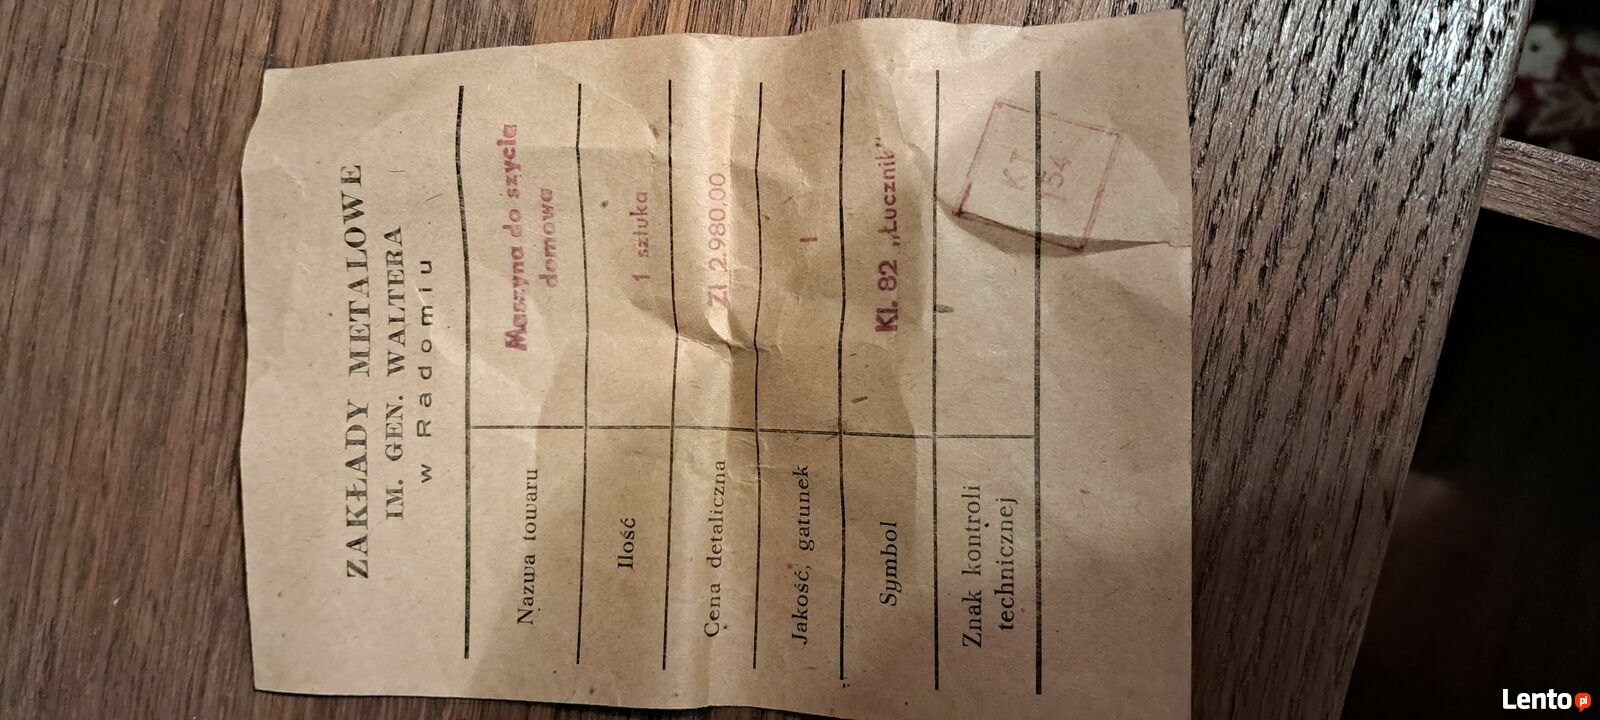 ZAKŁADY METALOWE
IM. GEN. WALTERA
w Radomiu
Nazwa towaru Maszyna do szycia
domowa
Ilość 1 sztuka
Cena detaliczna Zł 2.980,00
Jakość, gatunek 1
Symbol Kl. 82 „Łucznik”
Znak kontroli
technicznej
KT
154
Lento.pl